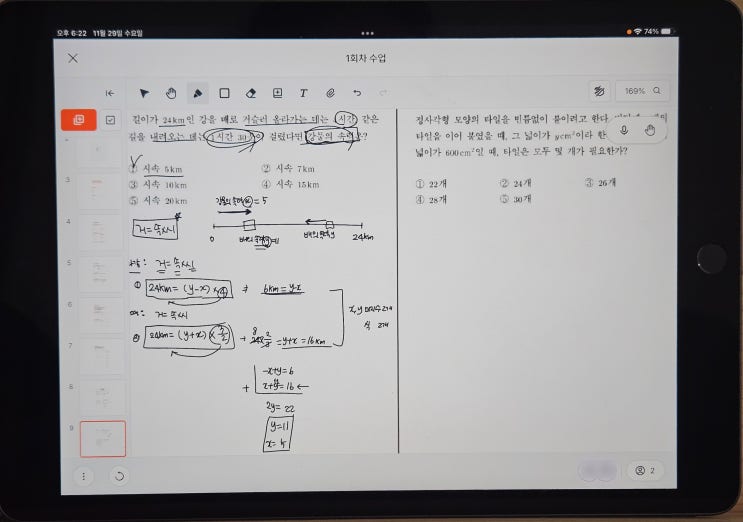 오후 6:22 11월 29일 수요일
74%
1회차 수업
T
169%
길이가 24km인 강을 배로 거슬러 올라가는 데는 시간 같은
길을 내려오는 데는 1시간 30분이 걸렸다면 강물의 속력은?
① 시속 5km
② 시속 7km
③ 시속 10km
④ 시속 15km
⑤ 시속 20km
강물의 속력 = 5
거=속×시
0
배의 속력
배의 속력y
24km
거=속×시
① 24km = (y-x) × 4
6km = y-x
거=속×시
② 24km = (y+x) × 3/2
= y+x = 16km
x, y 미지수 2개
식 2개
-x+y=6
+ x+y=16
2y = 22
y=11
x=5
정사각형 모양의 타일을 빈틈없이 붙이려고 한다.
타일을 이어 붙였을 때, 그 넓이가 ycm²이라 한
넓이가 600cm²일 때, 타일은 모두 몇 개가 필요한가?
① 22개
② 24개
③ 26개
④ 28개
⑤ 30개
3
4
5
6
7
8
9
2